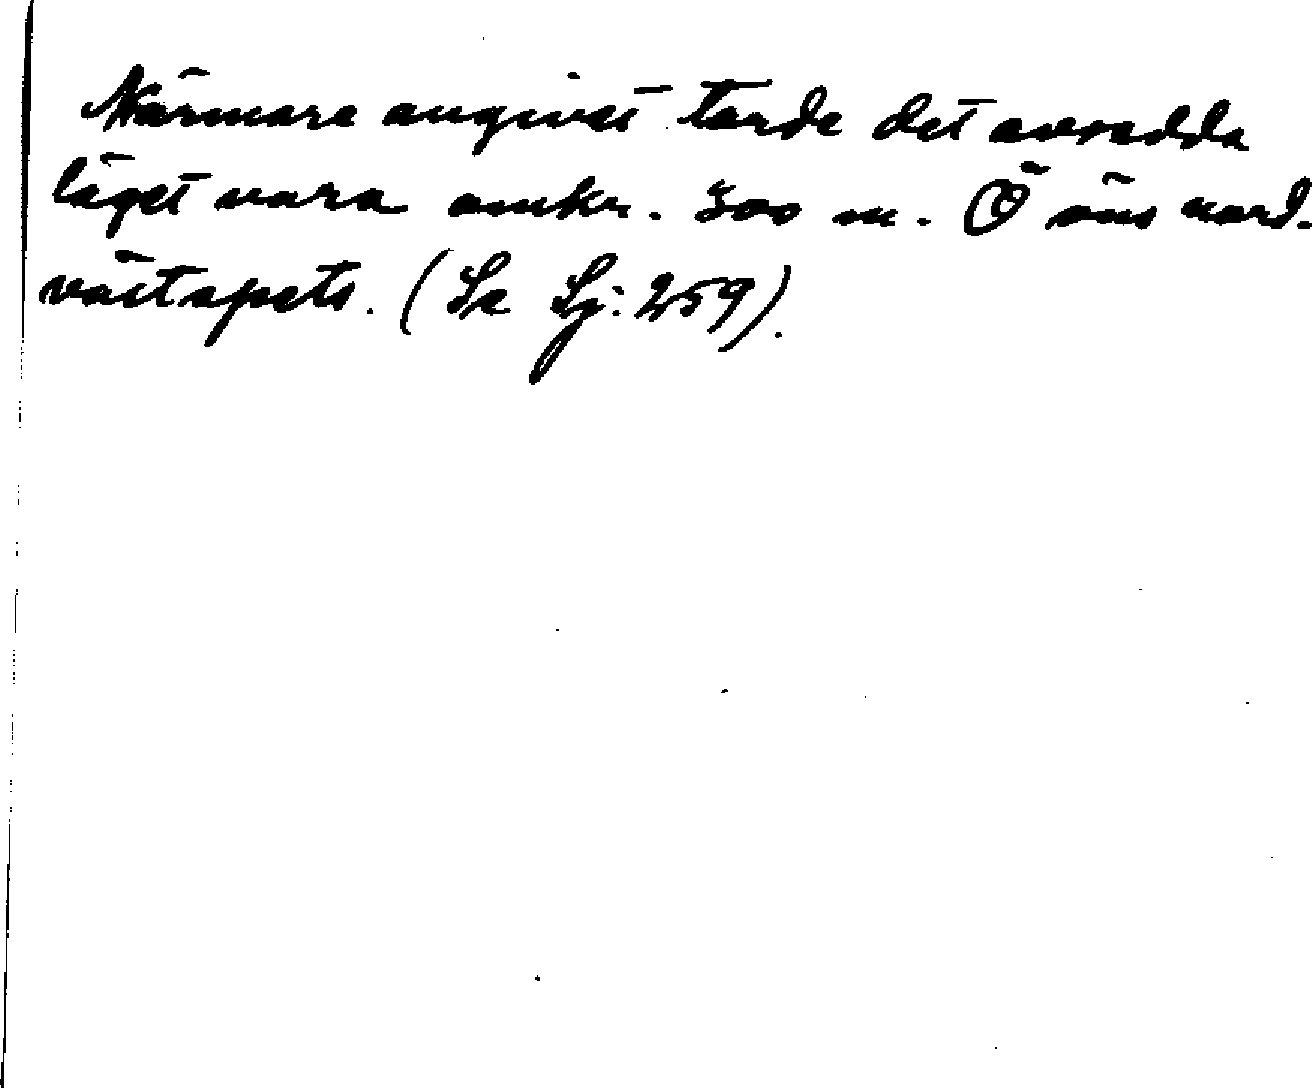 Närmare angivet torde det avsedda
läget vara omkr. 300 m. Ö öns nord-
västspets. (Se Sj: 259).